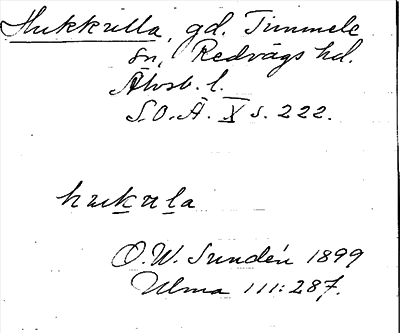 Hukkulla, gd. Timmele
sn, Redvägs hd.
Älvsb. l.
S.O.Ä. X s. 222.
hukula
O.W. Sundén 1899
Ulma 111:287.